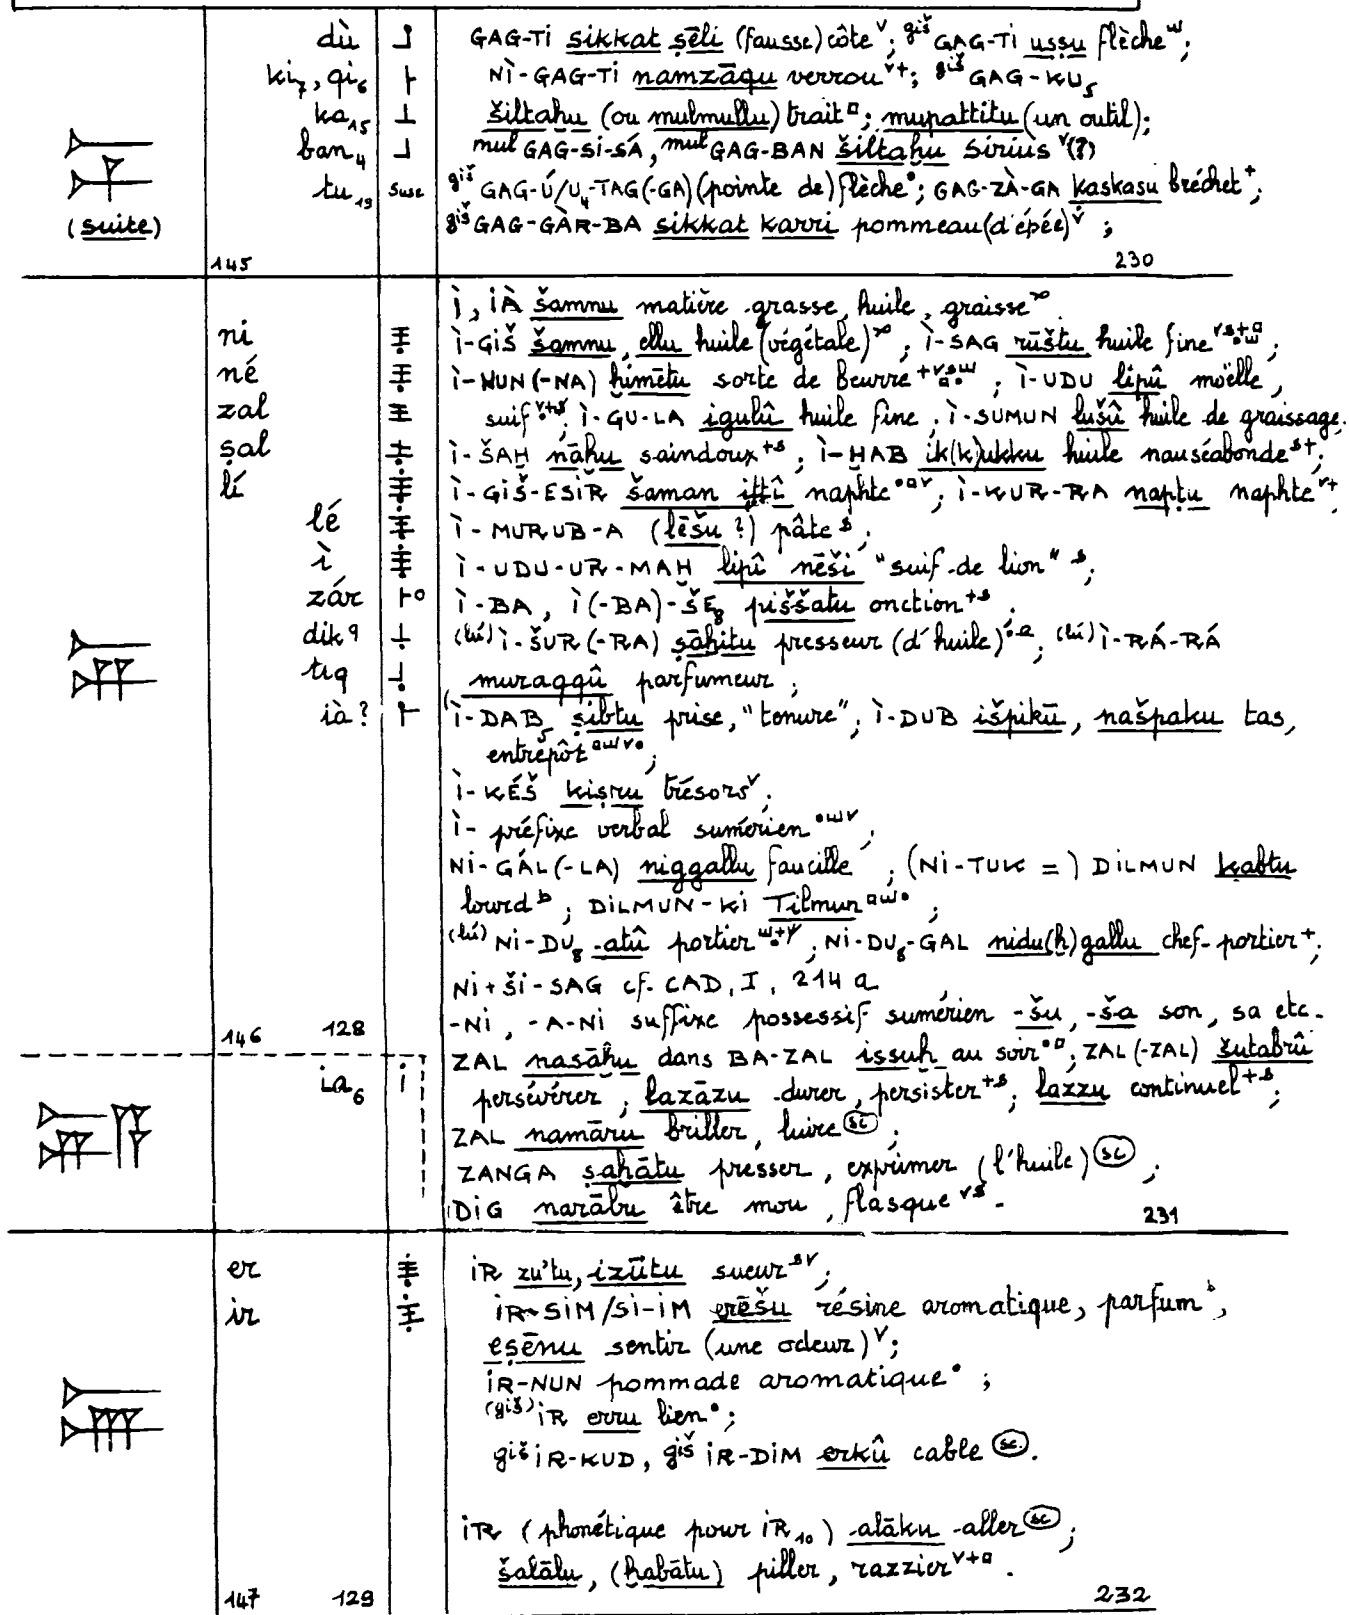 dù GAG-TI sikkat ṣēli (fausse) côte ; giš GAG-TI uṣṣu flèche ;
ki₇, qi₆ NÌ-GAG-TI namzāqu verrou ; giš GAG-KU₅
ka₁₅ šiltaḫu (ou mulmullu) trait ; mupattitu (un outil) ;
ban₄ mul GAG-SI-SÁ, mul GAG-BAN šiltaḫu Sirius (?)
tu₁₉ suse giš GAG-Ú/U₄-TAG(-GA) (pointe de) flèche ; GAG-ZÀ-GA kaskasu bréchet ;
(suite) giš GAG-GÀR-BA sikkat karri pommeau (d'épée) ;
145 230
Ì, IÀ šamnu matière grasse, huile, graisse
ni Ì-GIŠ šamnu, ellu huile (végétale) ; Ì-SAG rūštu huile fine ;
né Ì-NUN(-NA) ḫimētu sorte de beurre ; Ì-UDU lipû moëlle,
zal suif ; Ì-GU-LA igulû huile fine ; Ì-SUMUN lušû huile de graissage.
ṣal Ì-ŠAḪ nāḫu saindoux ; Ì-ḪAB ik(k)ukku huile nauséabonde ;
lí Ì-GIŠ-ESIR šaman iṭṭî naphte ; Ì-KUR-RA napṭu naphte
lé Ì-MURUB-A (lēšu ?) pâte ;
ì Ì-UDU-UR-MAḪ lipî nēši "suif de lion" ;
zár Ì-BA, Ì(-BA)-ŠE₈ piššatu onction ;
dik (lú) Ì-ŠUR(-RA) ṣāḫitu presseur (d'huile) ; (lú) Ì-RÁ-RÁ
tiq muraqqû parfumeur ;
ià ? Ì-DAB₅ ṣibtu prise, "tenure" ; Ì-DUB išpikū, našpaku tas,
entrepôt ;
Ì-KÉŠ kiṣru trésors ;
Ì- préfixe verbal sumérien ;
NI-GÁL(-LA) niggallu faucille ; (NI-TUK =) DILMUN kabtu
lourd ; DILMUN-KI Tilmun ;
(lú) NI-DU₈ atû portier ; NI-DU₈-GAL nidu(ḫ)gallu chef-portier ;
NI+ŠI-SAG cf. CAD, I, 214 a
-NI, -A-NI suffixe possessif sumérien -šu, -ša son, sa etc.
146 128
ZAL nasāḫu dans BA-ZAL issuḫ au soir ; ZAL(-ZAL) šutabrû
ia₆ persévérer ; lazāzu durer, persister ; lazzu continuel ;
ZAL namāru briller, luire sc ;
ZANGA ṣaḫātu presser, exprimer (l'huile) sc ;
DIG narābu être mou, flasque .
231
er IR zu'tu, izūtu sueur ;
ir IR-SIM/SI-IM erēšu résine aromatique, parfum ,
eṣēnu sentir (une odeur) ;
IR-NUN pommade aromatique ;
(giš) IR erru lien ;
giš IR-KUD, giš IR-DIM erkû cable sc .
IR (phonétique pour IR₁₀) alāku aller sc ;
šalālu, (ḫabātu) piller, razzier .
147 129 232